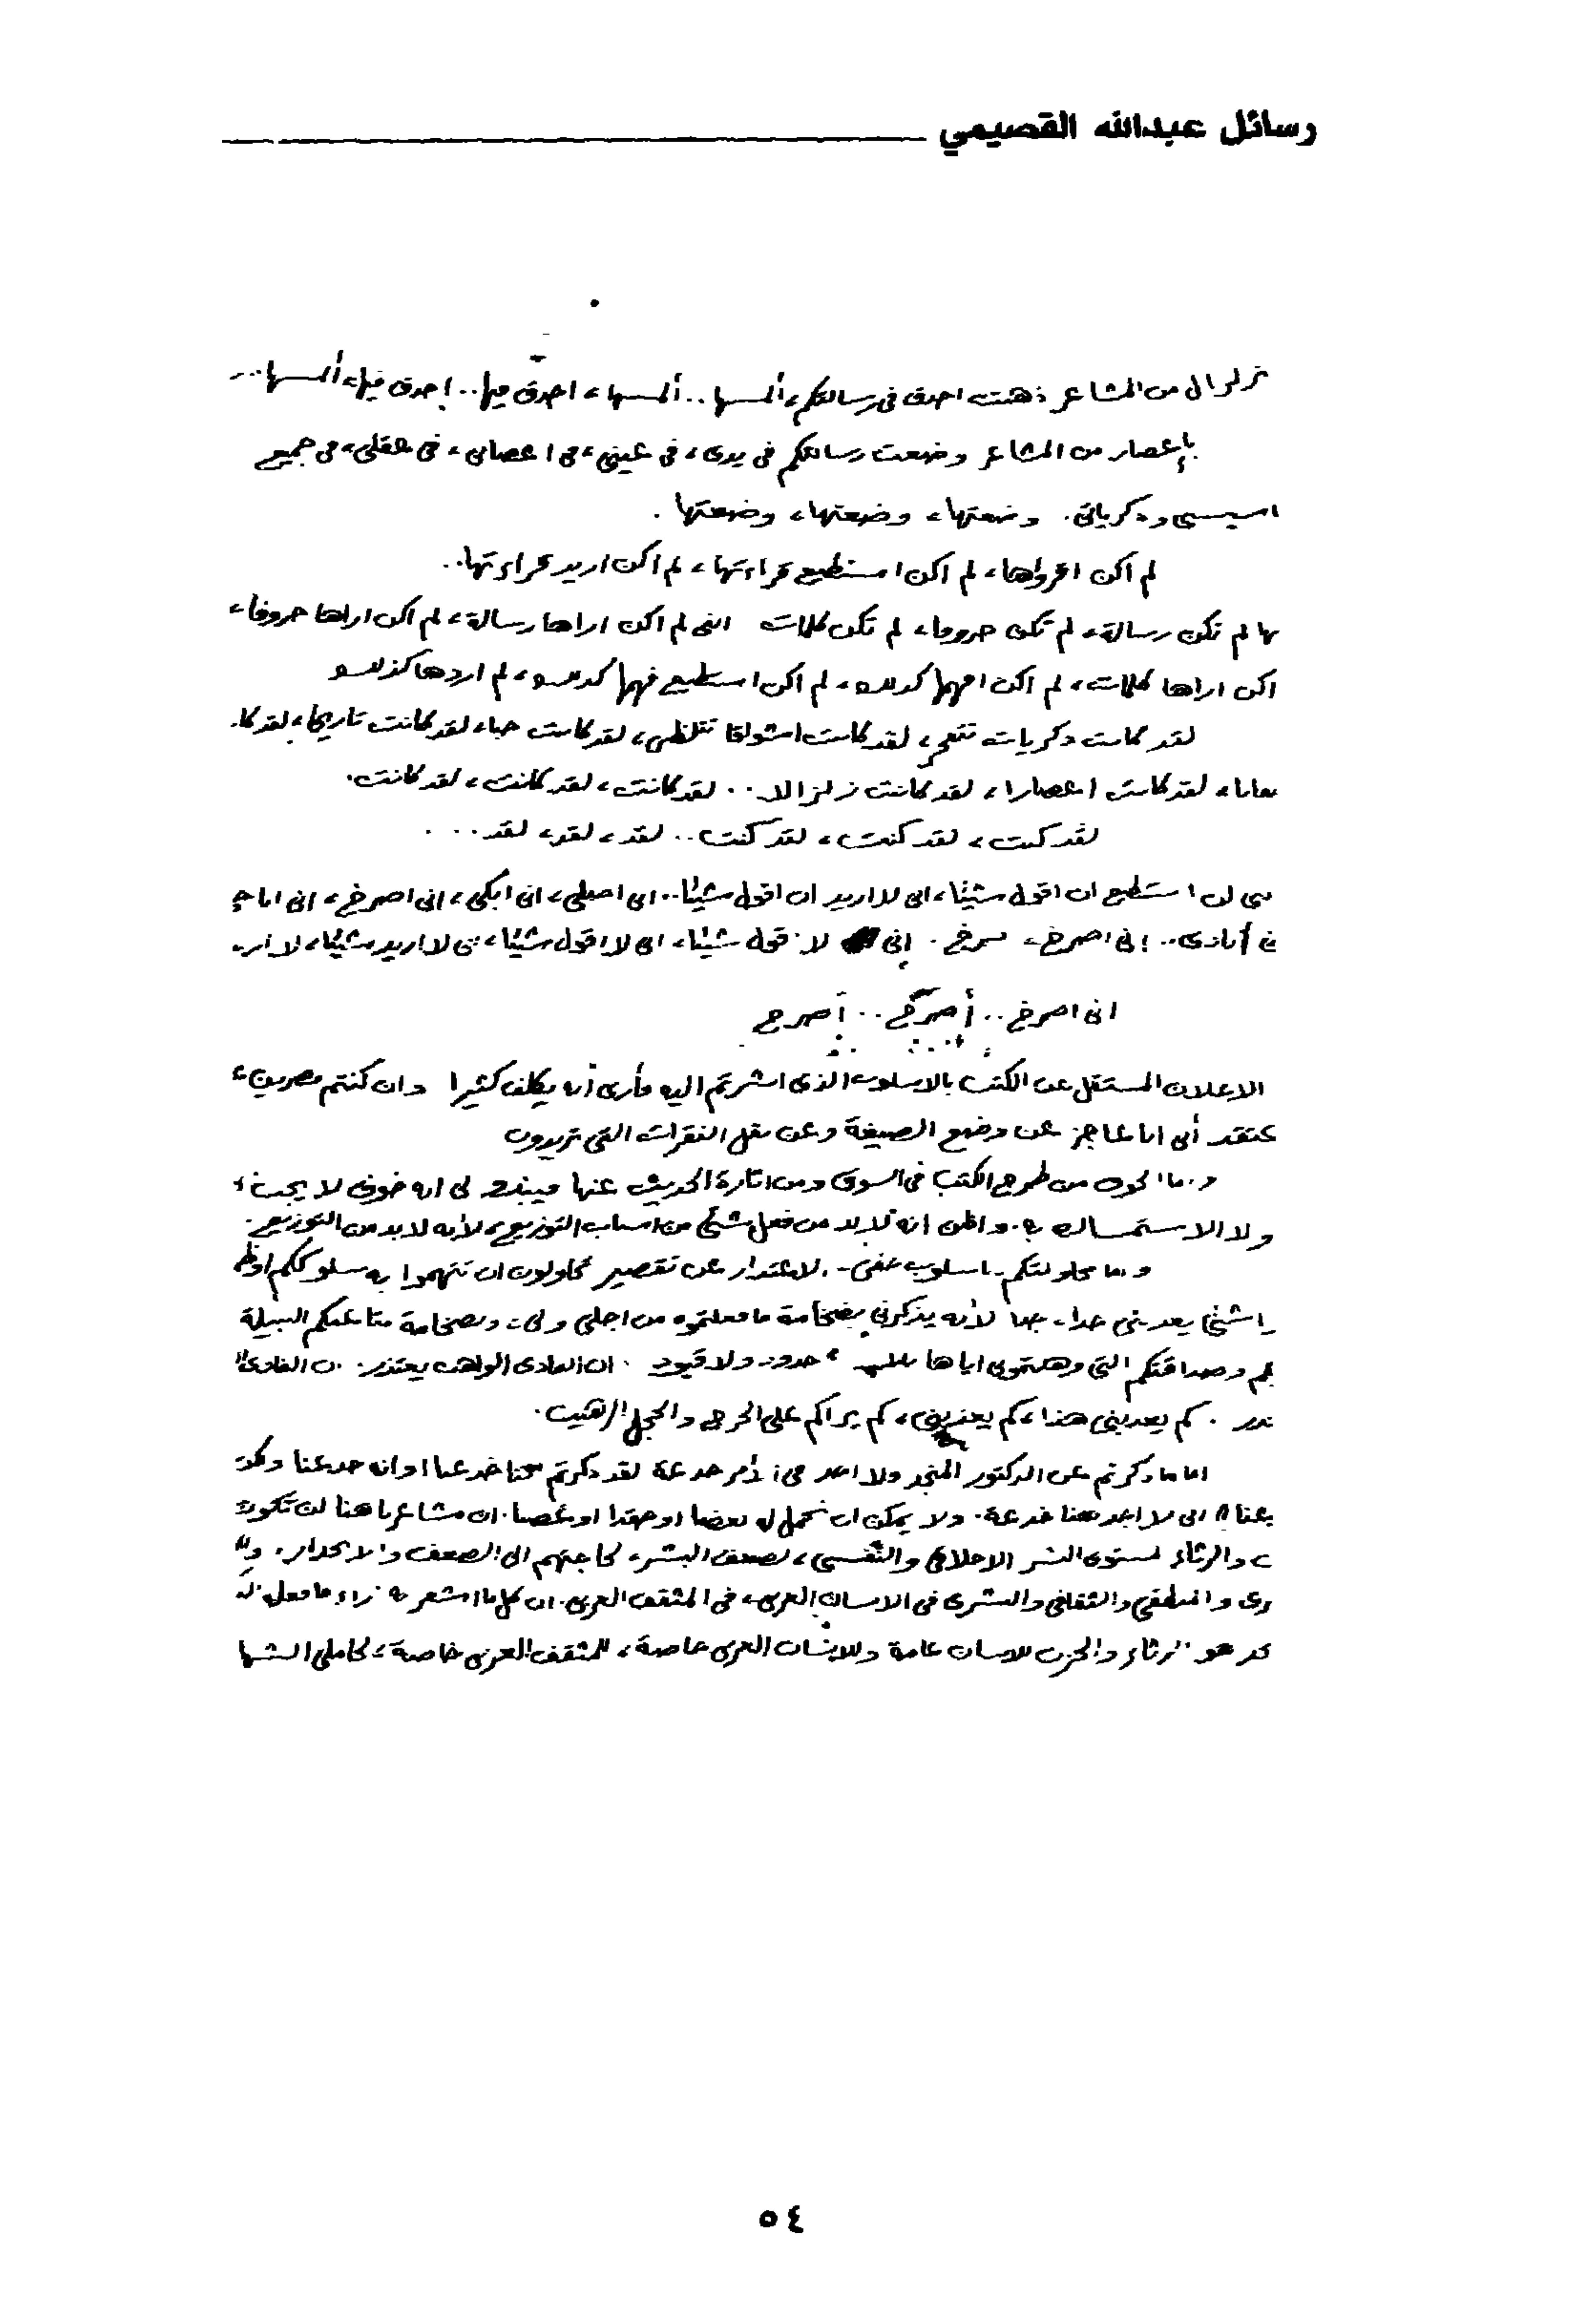 رسائل عبدالله القصيمي
زلزال من المشاعر ذهبت احدق فى رسالتكم، ألمسها.. ألمسها، احدق فيها.. احدق فيها، ألمسها...
بإعصار من المشاعر وضعت رسالتكم فى يدى، فى عينى، فى اعصابى، فى عقلى، فى جميع
وذكرياتى. وضعتها، وضعتها، وضعتها.
لم اكن اقرؤها، لم اكن استطيع قراءتها، لم اكن اريد قراءتها..
لم تكن رسالة، لم تكن حروفا، لم تكن كلمات انى لم اكن اراها رسالة، لم اكن اراها حروفا،
اكن اراها كلمات، لم اكن افهمها كذلك، لم اكن استطيع فهمها كذلك، لم اردها كذلك
لقد كانت ذكريات تتفجر، لقد كانت اشواقا تتلظى، لقد كانت حبا، لقد كانت تاريخا، لقد كا
لقد كانت اعصارا، لقد كانت زلزالا.. لقد كانت، لقد كانت، لقد كانت.
لقد كنت، لقد كنت، لقد كنت.. لقد، لقد، لقد...
لن استطيع ان اقول شيئا، انى لا اريد ان اقول شيئا.. انى اصلى، انى ابكى، انى اصرخ، انى
أنادى.. إنى اصرخ، اصرخ. إنى لا اقول شيئا، انى لا اقول شيئا، لا اريد شيئا، لا ار
انى اصرخ.. أصرخ.. أصرخ
الاعلان المستقل عن الكتب بالاسلوب الذى اشرتم اليه فأرى أنه يكلف كثيرا وان كنتم مصرين،
أنى انا عاجز عن وضع الصيغة وعن نقل الفقرات التى تريدون
من طرح الكتب فى السوق ومن اثارة الحديث عنها فيبدو لى انه خوف لا يجب
ولا الاستمساك به. واظن انه لا بد من فعل شئ من اسباب التوزيع، لأنه لا بد من التوزيع.
وما محاولتكم باسلوب خفى. الاعتذار عن تقصير تحاولون ان تتهموا به سلوككم او
يعذبنى جدا، جدا لأنه يذكرنى بضخامة ما فعلتموه من اجلى ولى، وبضخامة متاعبكم النبيلة
وصداقتكم التى وهبتمونى اياها بلا حدود ولا قيود. ان الفادى الواهب يعتذر. الفادى
كم يعذبنى هذا، كم يعذبنى، كم يراكم على الحرج والخجل الرهيب.
اما ما ذكرتم عن الدكتور المنجد ولا اجد فى الأمر خدعة لقد ذكرتم خدعنا او انه خدعنا
انى لا اجد هنا خدعة. ولا يمكن ان نحمل له بغضا او حقدا او غضبا. ان مشاعرنا هنا لن تكون
والرثاء لمستوى البشر الاخلاقى والنفسى، لضعف البشر، لحاجتهم الى الضعف والانحدار،
والمنطقى والثقافى والبشرى فى الانسان العربى، فى المثقف العربى. ان كل ما اشعر به ازاء ما فعل
هو الرثاء والحزن للانسان عامة وللانسان العربى خاصة، للمثقف العربى خاصة، لحاملى الشها
٥٤